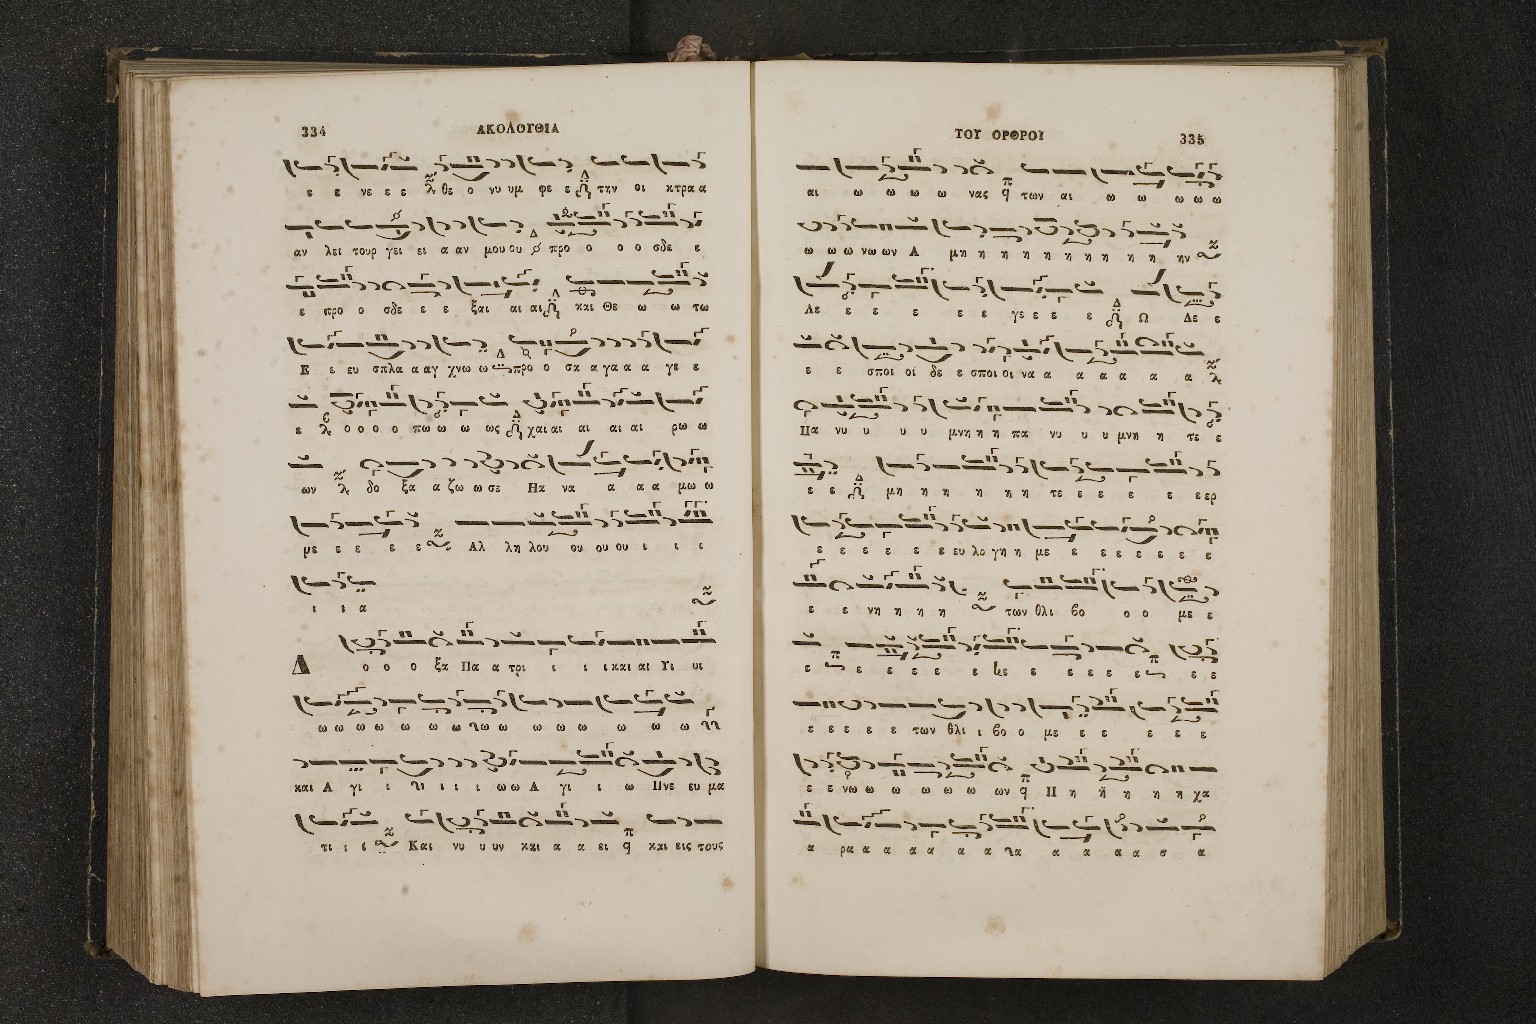 334
ΑΚΟΛΟΥΘΙΑ
ε ε νε ε ε θε ο νυ υμ φε ε την οι κτρα α
αν λει τουρ γει ει α αν μου ου προ ο ο ο σδε ε
ε προ ο σδε ε ε ξαι αι αι και Θε ω ω τω
Ε ε ευ σπλα α αγ χνω ω προ ο σα α γα α α γε ε
ε ο ο ο ο πω ω ω ω ως χαι αι αι αι αι ρω ω
ων δο ξα α ζω ω σε Ηα να α α α μω ω
με ε ε ε ε Αλ λη λου ου ου ου ι ι ι
ι ι α
Δ ο ο ο ξα Πα α τρι ι ι ι και αι Υι υι
ω ω ω ω ω ω ω ω ω ω ω ω ω ω
και Α γι ι ι ι ι ω ω Α γι ι ω Πνε ευ μα
τι ι ι Και νυ υ υν και α α ει και εις τους
ΤΟΥ ΟΡΘΡΟΥ
335
αι ω ω ω ω νας των αι ω ω ω ω ω
ω ω ω νω ων Α μη η η η η η η η η ην
Λε ε ε ε ε ε γε ε ε ε Ω Δε ε
ε ε σποι οι δε ε σποι οι να α α α α α α
Πα νυ υ υ υ μνη η η πα νυ υ υ μνη η τε ε
ε ε μη η η η η η τε ε ε ε ε ε ερ
ε ε ε ε ε ε ευ λο γη η με ε ε ε ε ε ε ε
ε ε νη η η η των θλι βο ο ο με ε
ε ε ε ε ε ε ε ε ε ε ε ε ε
ε ε ε ε ε των θλι ι βο ο με ε ε ε ε ε
ε ε νω ω ω ω ω ω ων Η η η η η η χα
α ρα α α α α α α α α α α α α